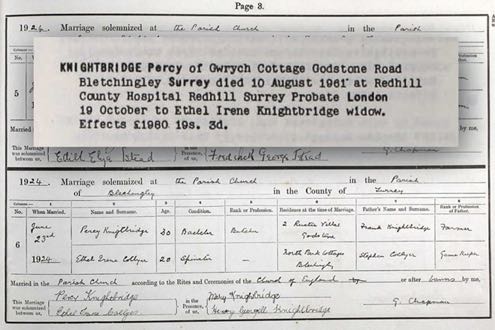 Page 3.
1924. Marriage solemnized at the Parish Church in the Parish
No. When
5
KNIGHTBRIDGE Percy of Gwrych Cottage Godstone Road
Bletchingley Surrey died 10 August 1961 at Redhill
County Hospital Redhill Surrey Probate London
19 October to Ethel Irene Knightbridge widow.
Effects £1960 19s. 3d.
Married in by me,
This Marriage was solemnized between us, Edith Eliza Istead Frederick George Istead G. Chapman
1924. Marriage solemnized at the Parish Church in the Parish
of Blechingley in the County of Surrey
Columns :— 1 2 3 4 5 6 7 8
No. When Married. Name and Surname. Age. Condition. Rank or Profession. Residence at the time of Marriage. Father's Name and Surname. Rank or Profession of Father.
6 June 23rd 1924 Percy Knightbridge 30 Bachelor Butcher 2 Rustic Villas Godstone Frank Knightbridge Farmer
Ethel Irene Collyer 20 Spinster — North Park Cottages Blechingley Stephen Collyer Game Keeper
Married in the Parish Church according to the Rites and Ceremonies of the Church of England or after banns by me,
This Marriage was solemnized between us, Percy Knightbridge Ethel Irene Collyer in the Presence of us, Mary Knightbridge Knightbridge G. Chapman